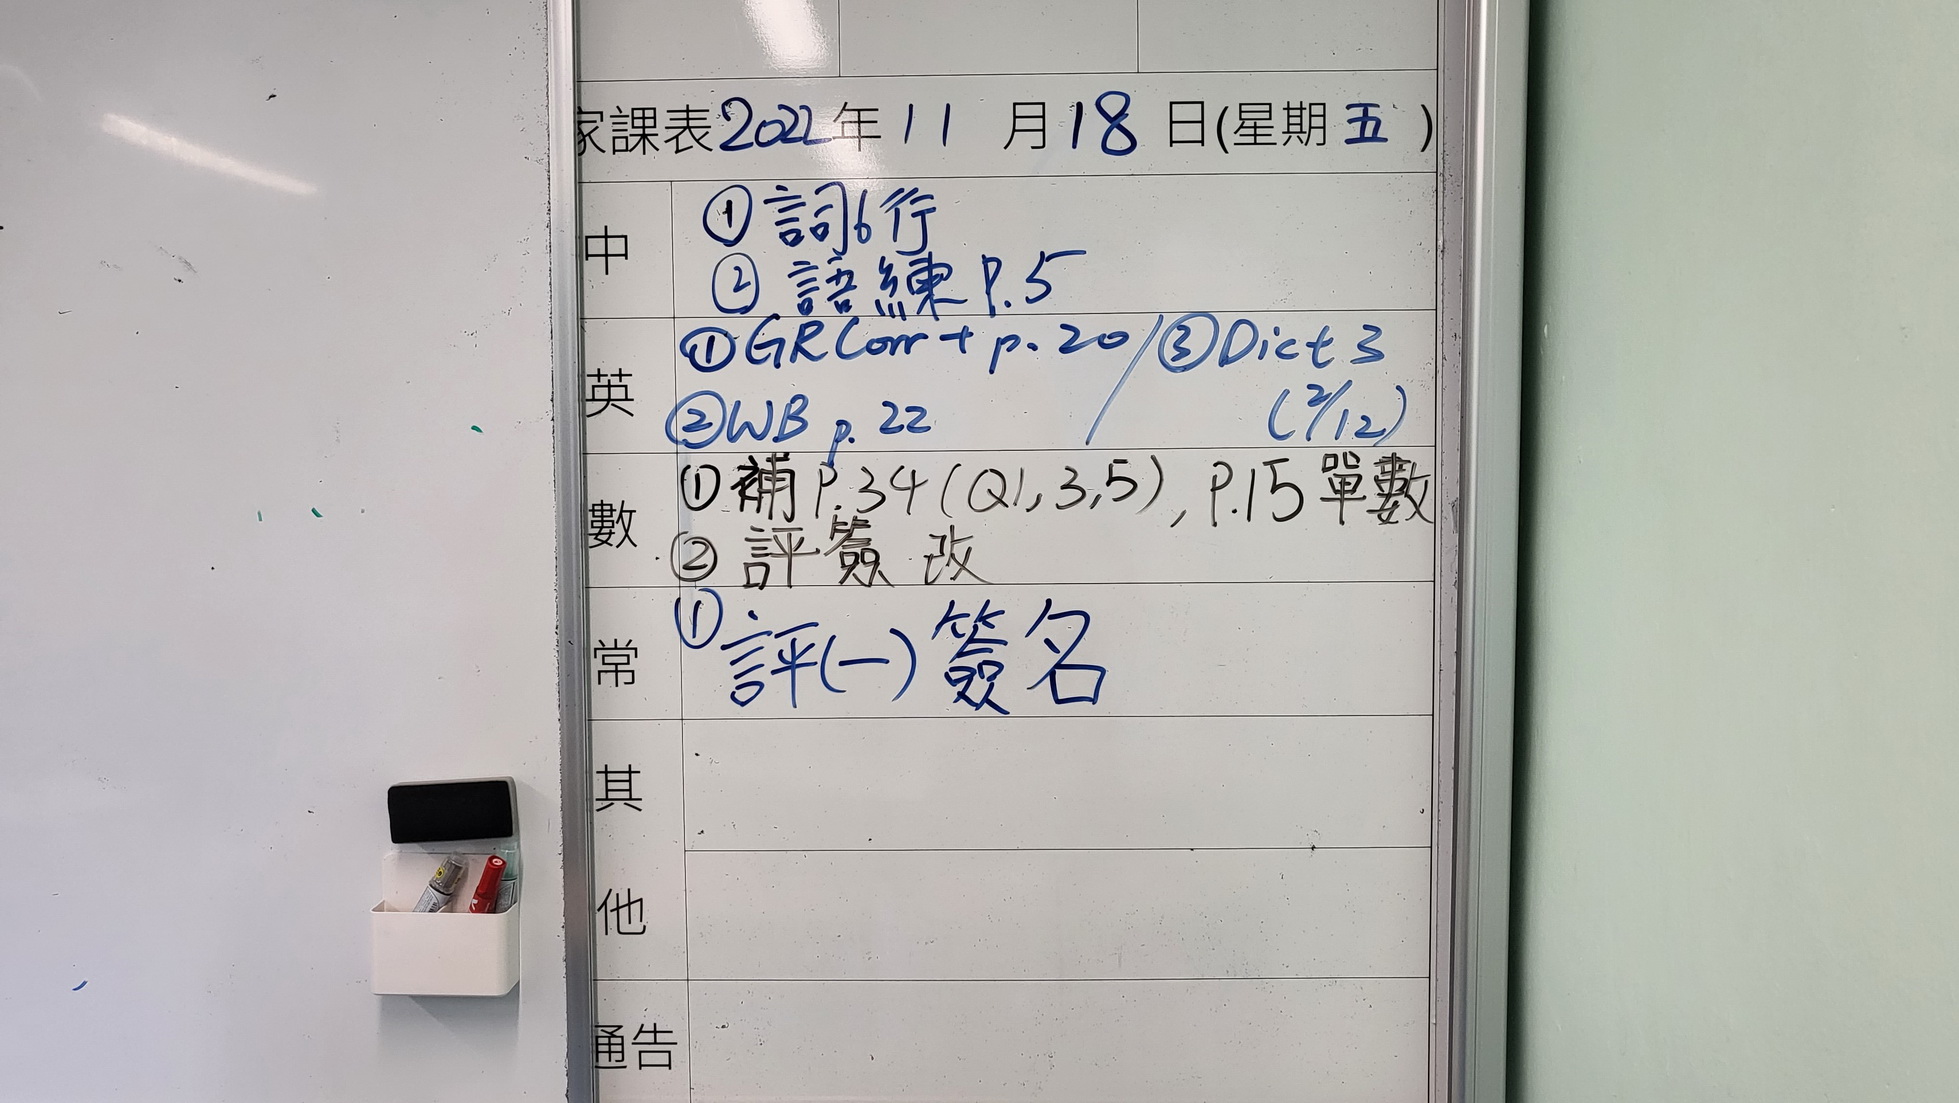 家課表2022年11月18日(星期五)
中
① 詞6行
② 語練 P.5
英
① GR Corr + p. 20 / ③ Dict 3
② WB p. 22 (2/12)
數
① 補 P.34 (Q1, 3, 5), P.15 單數
② 評簽 改
常
① 評(一)簽名
其
他
通告